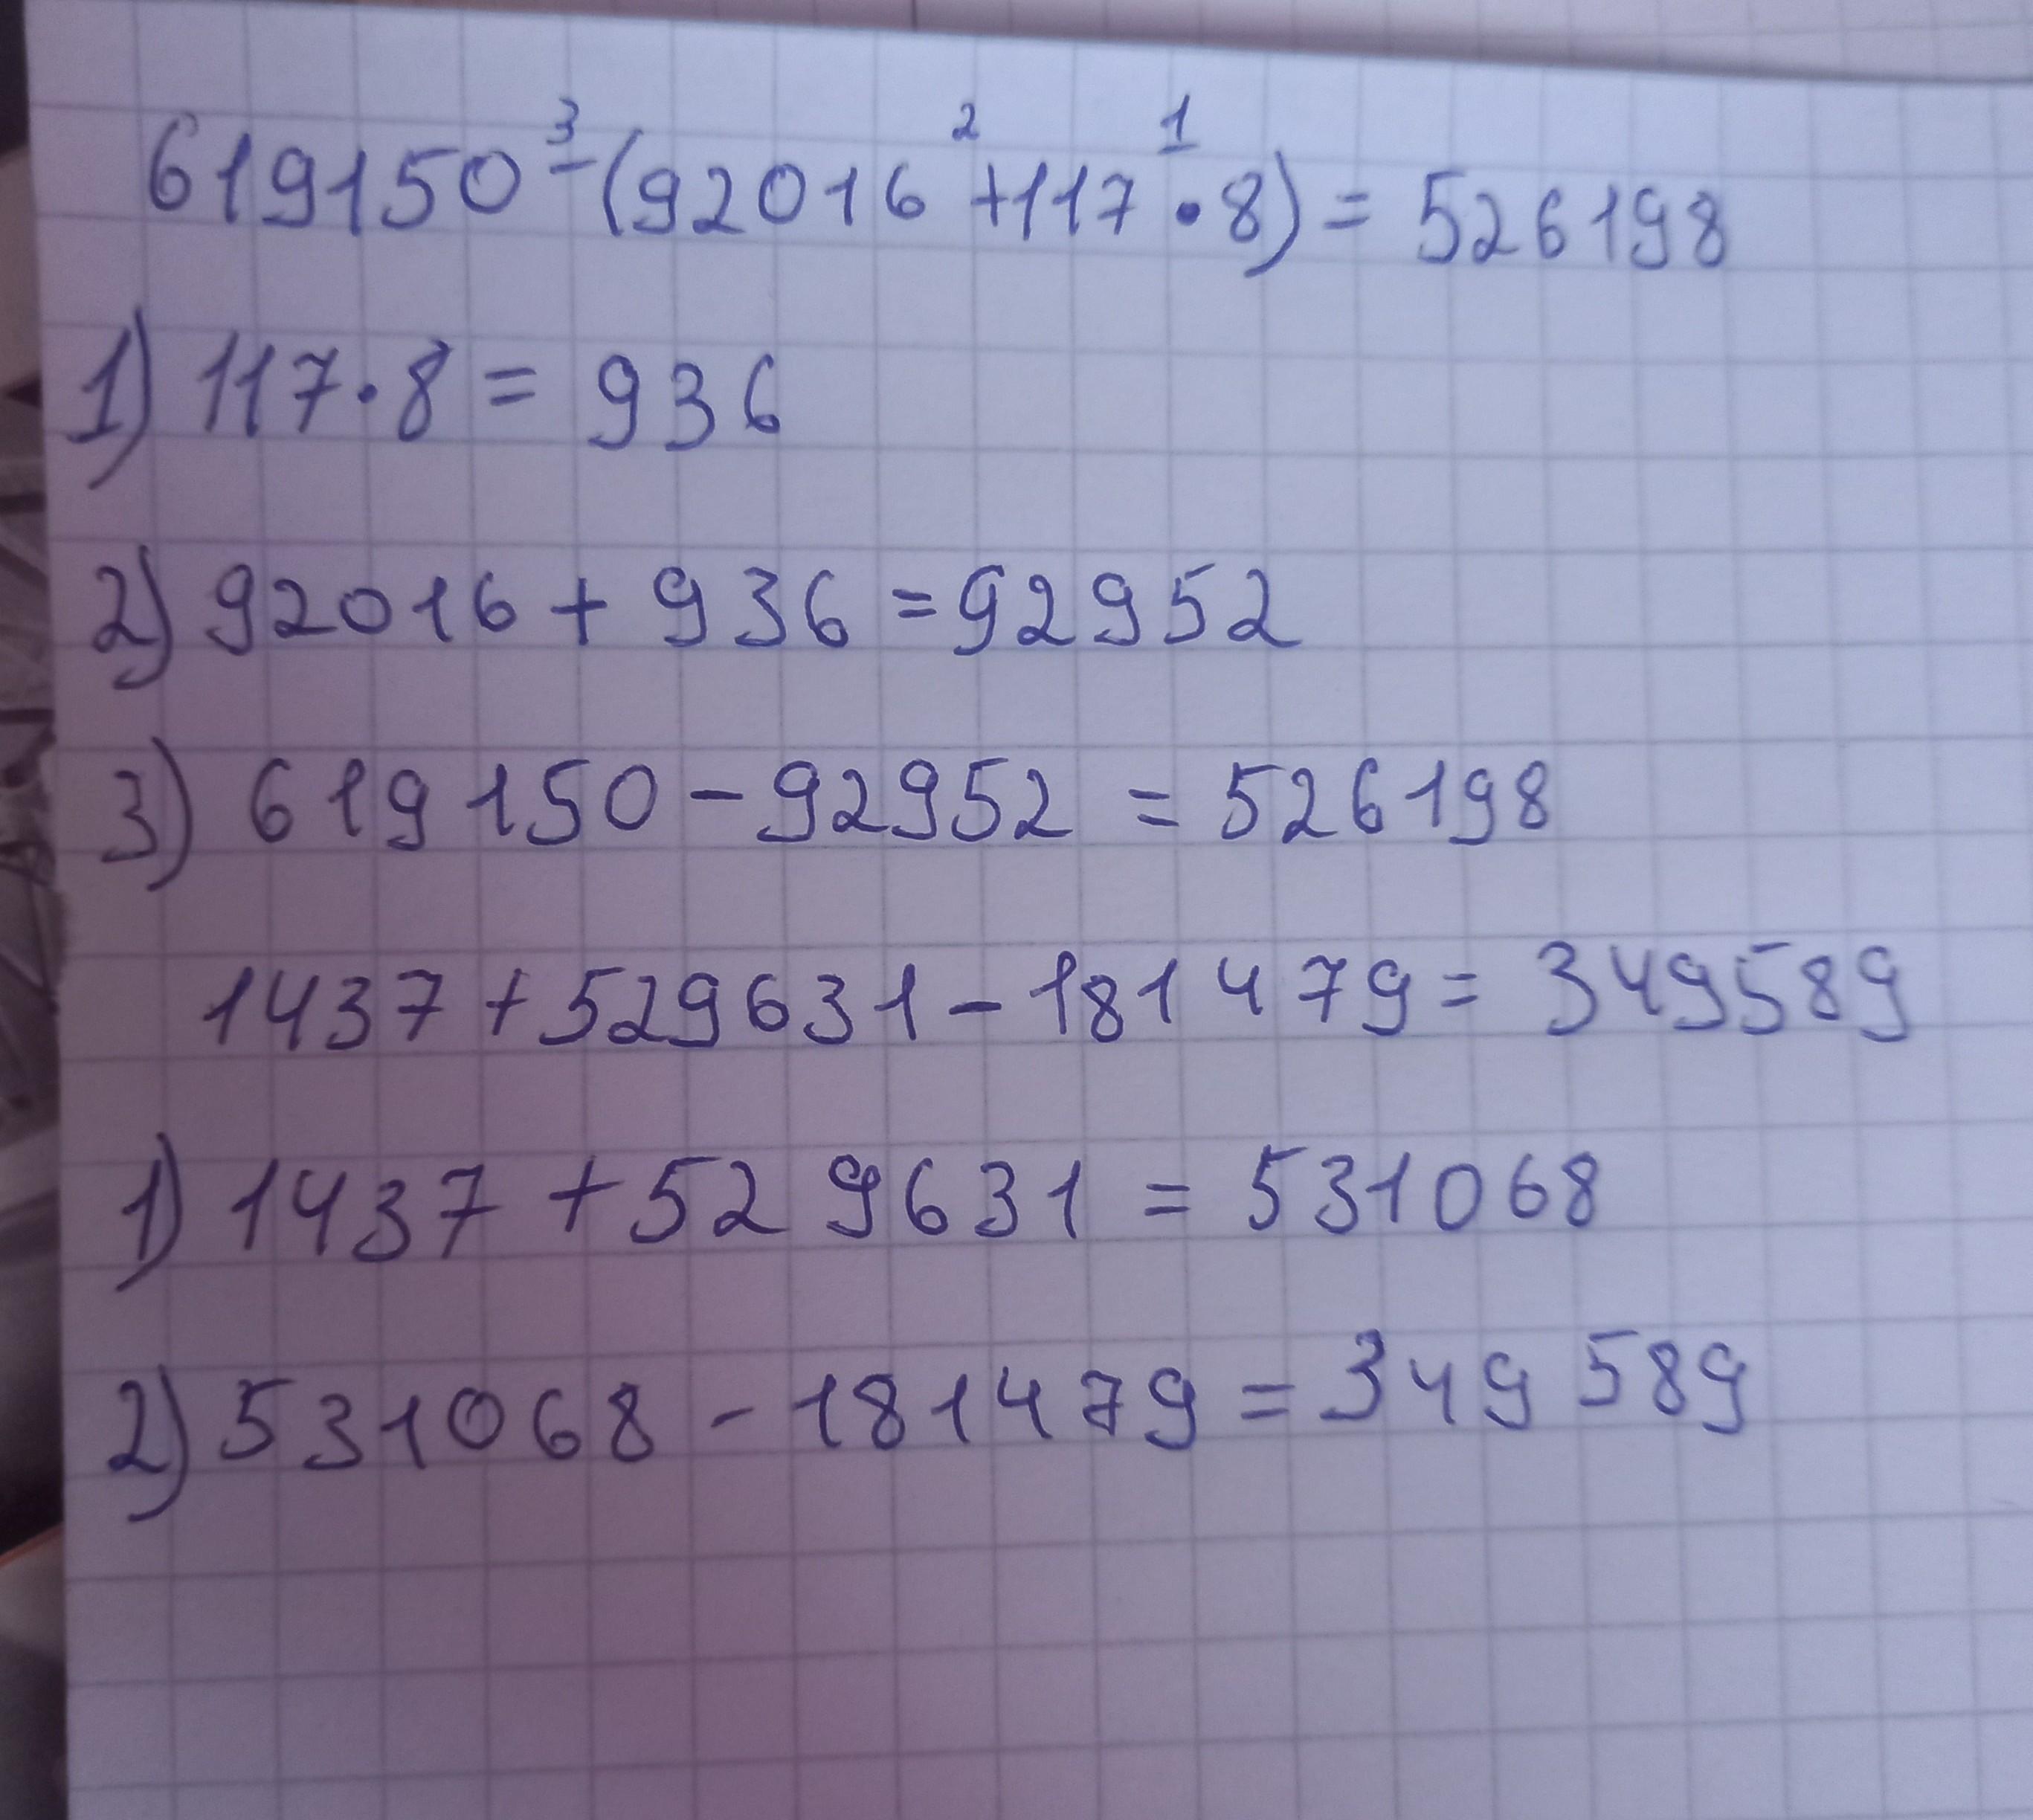 3 2 1
619150 - (92016 + 117 • 8) = 526198
1) 117 • 8 = 936
2) 92016 + 936 = 92952
3) 619150 - 92952 = 526198
1437 + 529631 - 181479 = 349589
1) 1437 + 529631 = 531068
2) 531068 - 181479 = 349589